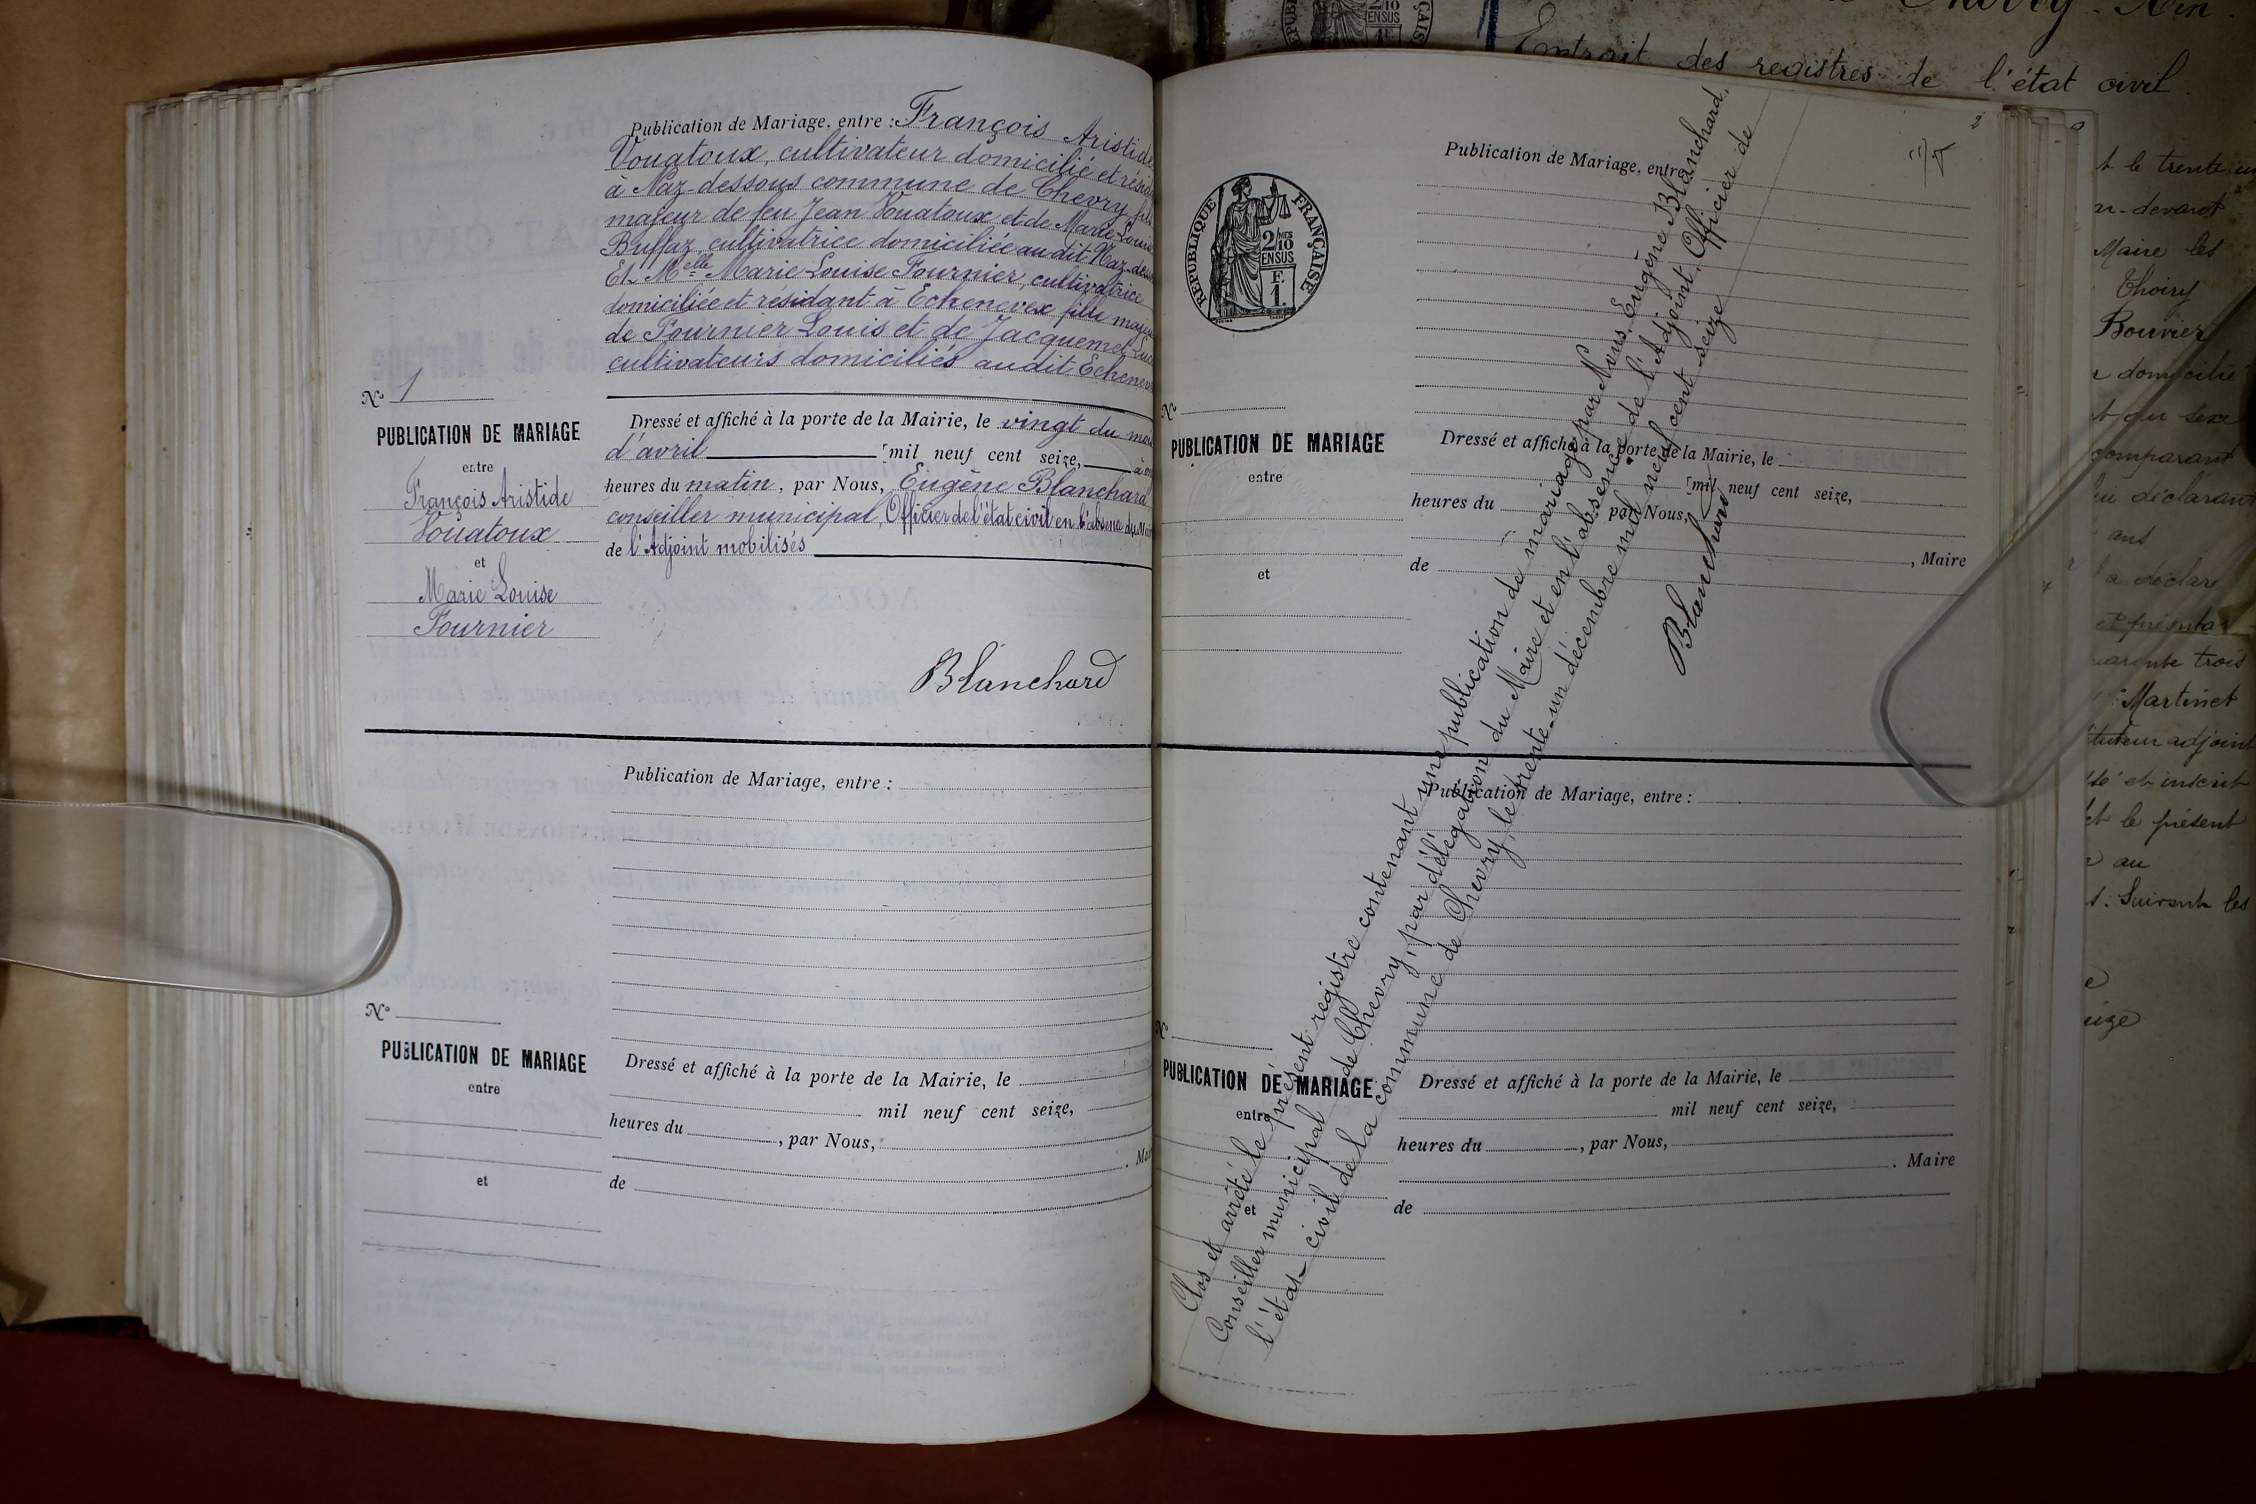 Publication de Mariage, entre : François Aristide
Vouatoux, cultivateur domicilié et résid
à Naz-dessous commune de Chevry, fils
majeur de feu Jean Vouatoux et de Marie Louise
Buffaz, cultivatrice domiciliée au dit Naz-dessous
Et Melle Marie Louise Fournier, cultivatrice
domiciliée et résidant à Echenevex, fille majeu
de Fournier Louis et de Jacquemet
cultivateurs domiciliés au dit Echenev
N° 1
PUBLICATION DE MARIAGE
entre
François Aristide
Vouatoux
et
Marie Louise
Fournier
Dressé et affiché à la porte de la Mairie, le vingt du mois
d'avril mil neuf cent seize, à
heures du matin, par Nous, Eugène Blanchard
conseiller municipal, Officier de l'état civil en l'absence du Maire
de l'Adjoint mobilisés
Blanchard
Publication de Mariage, entre :
N°
PUBLICATION DE MARIAGE
entre
et
Dressé et affiché à la porte de la Mairie, le
mil neuf cent seize,
heures du , par Nous,
. Mai
de
2
RÉPUBLIQUE FRANÇAISE
2/10 EN SUS
F.
1.
Publication de Mariage, entre
N°
PUBLICATION DE MARIAGE
entre
et
Dressé et affiché à la porte de la Mairie, le
mil neuf cent seize,
heures du par Nous,
de , Maire
Clos et arrêté le présent registre contenant une publication de mariage par Nous, Eugène Blanchard,
Conseiller municipal de Chevry, par délégation du Maire et en l'absence de l'Adjoint, Officier de
l'état-civil de la commune de Chevry, le trente-un décembre mil neuf cent seize
Blanchard
Publication de Mariage, entre :
N°
PUBLICATION DE MARIAGE
entre
et
Dressé et affiché à la porte de la Mairie, le
mil neuf cent seize,
heures du , par Nous,
. Maire
de
Extrait des registres de l'état civil
t le trente
Maire les
Thoiry
Bouvier
domicilié
t du sexe
comparant
déclarant
ans
a déclaré
présenta
arente trois
Martinet
tuteur adjoint
et inscrit
et le présent
au
Suivent les